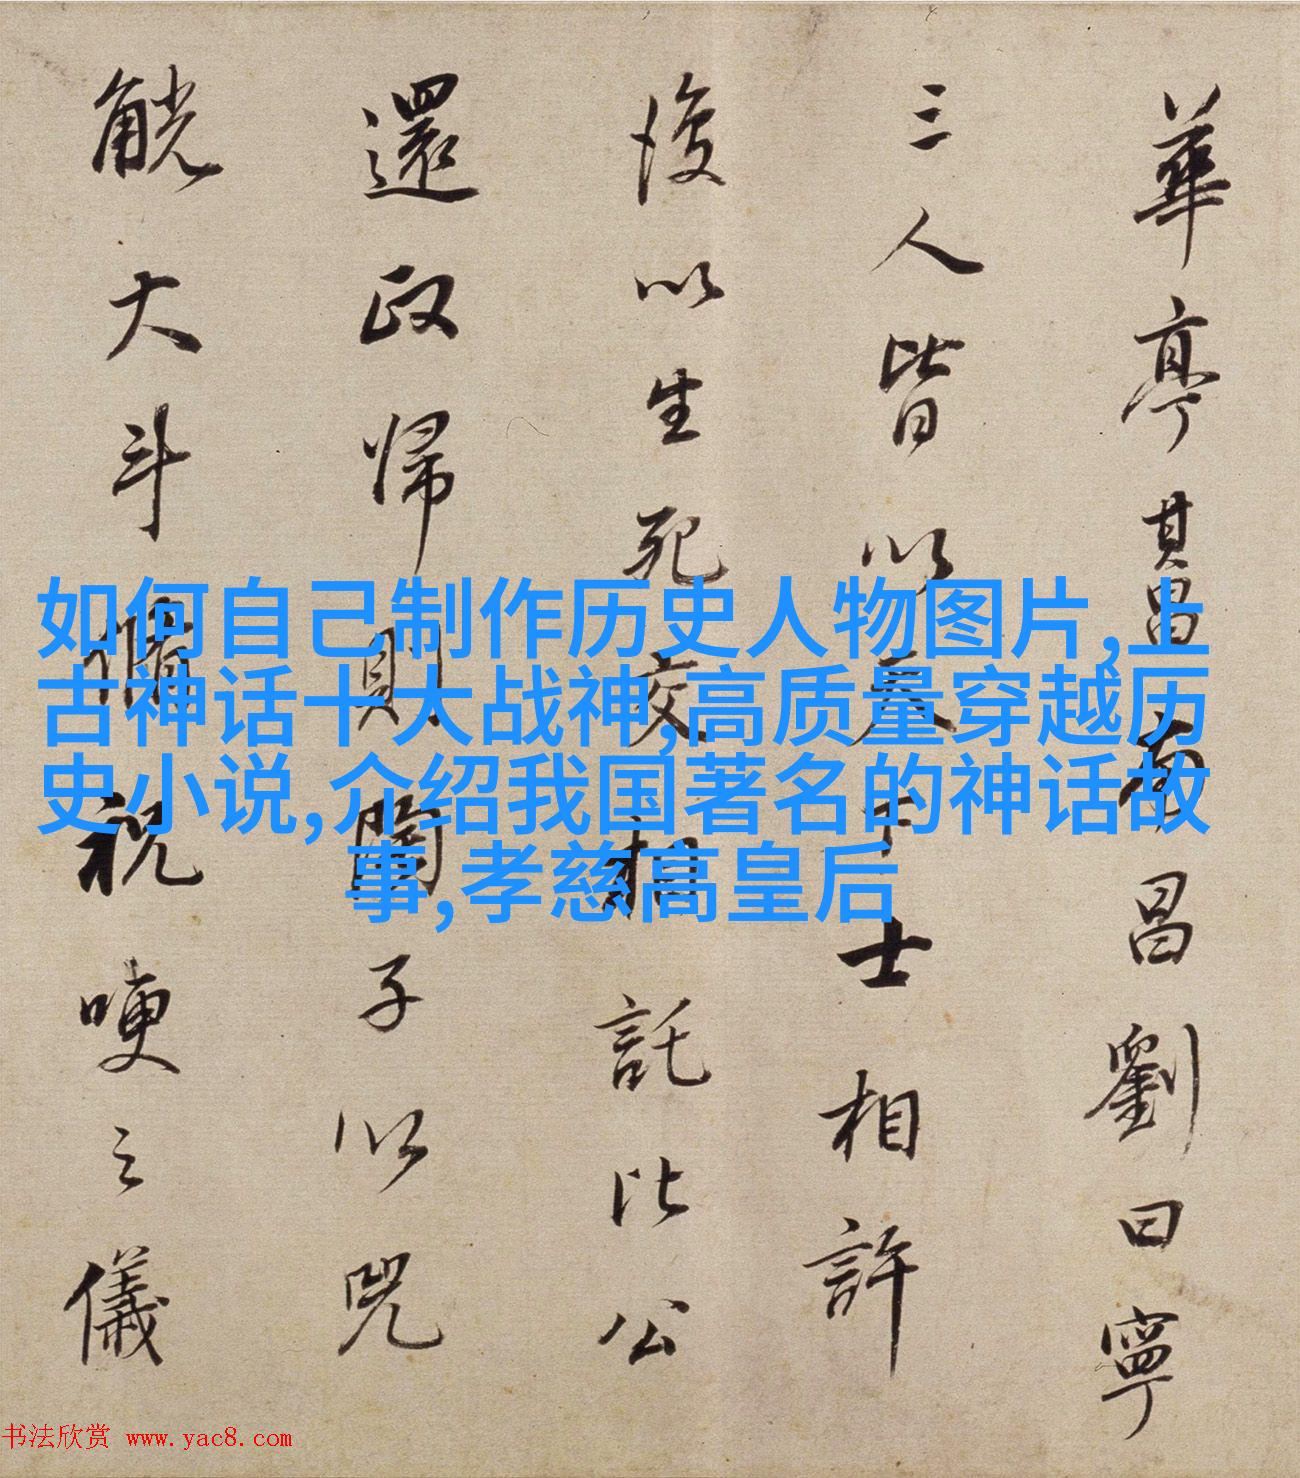 華亭其昌南昌劉曰寧
三人皆以天下士相許
後以生死交相託比公
還政歸則子以兕
觥大斗祝哽之儀
如何自己制作历史人物图片,上
古神话十大战神,高质量穿越历
史小说,介绍我国著名的神话故
事,孝慈高皇后
书法欣赏 www.yac8.com